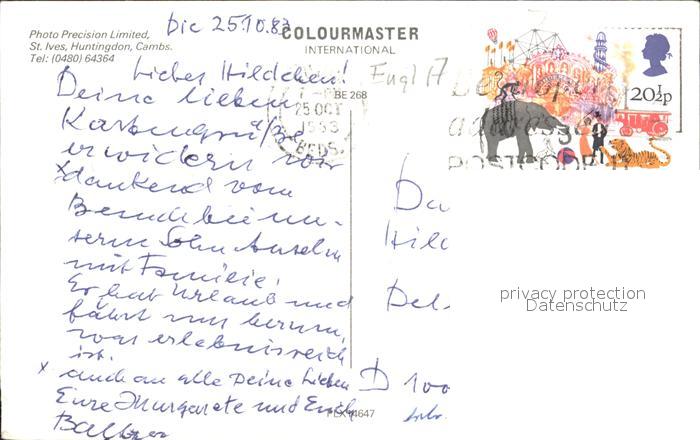 Die 25.10.83
Photo Precision Limited,
St. Ives, Huntingdon, Cambs.
Tel: (0480) 64364
COLOURMASTER
INTERNATIONAL
BE 268
20½p
25 OCT
1983
BEDS.
POSTCODE
Liebes Hildchen!
Deine lieben
Kartengrüße
erwidern wir
x dankend vom
Besuch bei un-
serm Sohn Anselm
mit Familie.
Er hat Urlaub und
fährt uns herum,
was erlebnisreich
ist.
x auch an alle Deine Lieben
Eure Margarete und Erich
PLX 14647
Engl
D 100
privacy protection
Datenschutz